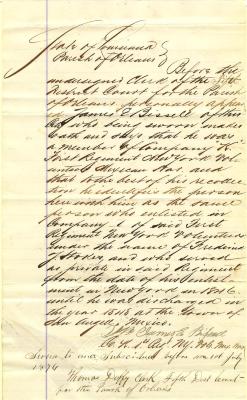 State of Louisiana
Parish of Orleans
Before the
undersigned Clerk of the 5th
District Court for the Parish
of Orleans, personally appea
James E Bissell of this
City who being sworn makes
Oath and says that he was
a member of Company K
First Regiment New York Vol
unteers Mexican War and
that to the best of his recollec
tion he identifies the person
here with him as the same
person who enlisted in
Company of said First
Regiment New York Volunteers
under the name of
and who served
as private in said Regiment
from the date of his
until in New York in
until he was discharged in
the year 1848 at the town of
San Angel, Mexico.
James E Bissell
Co 1st Reg. NY. Vol. Mex War
Sworn to and Subscribed before me 1st July
1876
Thomas Duffy Clerk Fifth Dist Court
for the Parish of Orleans